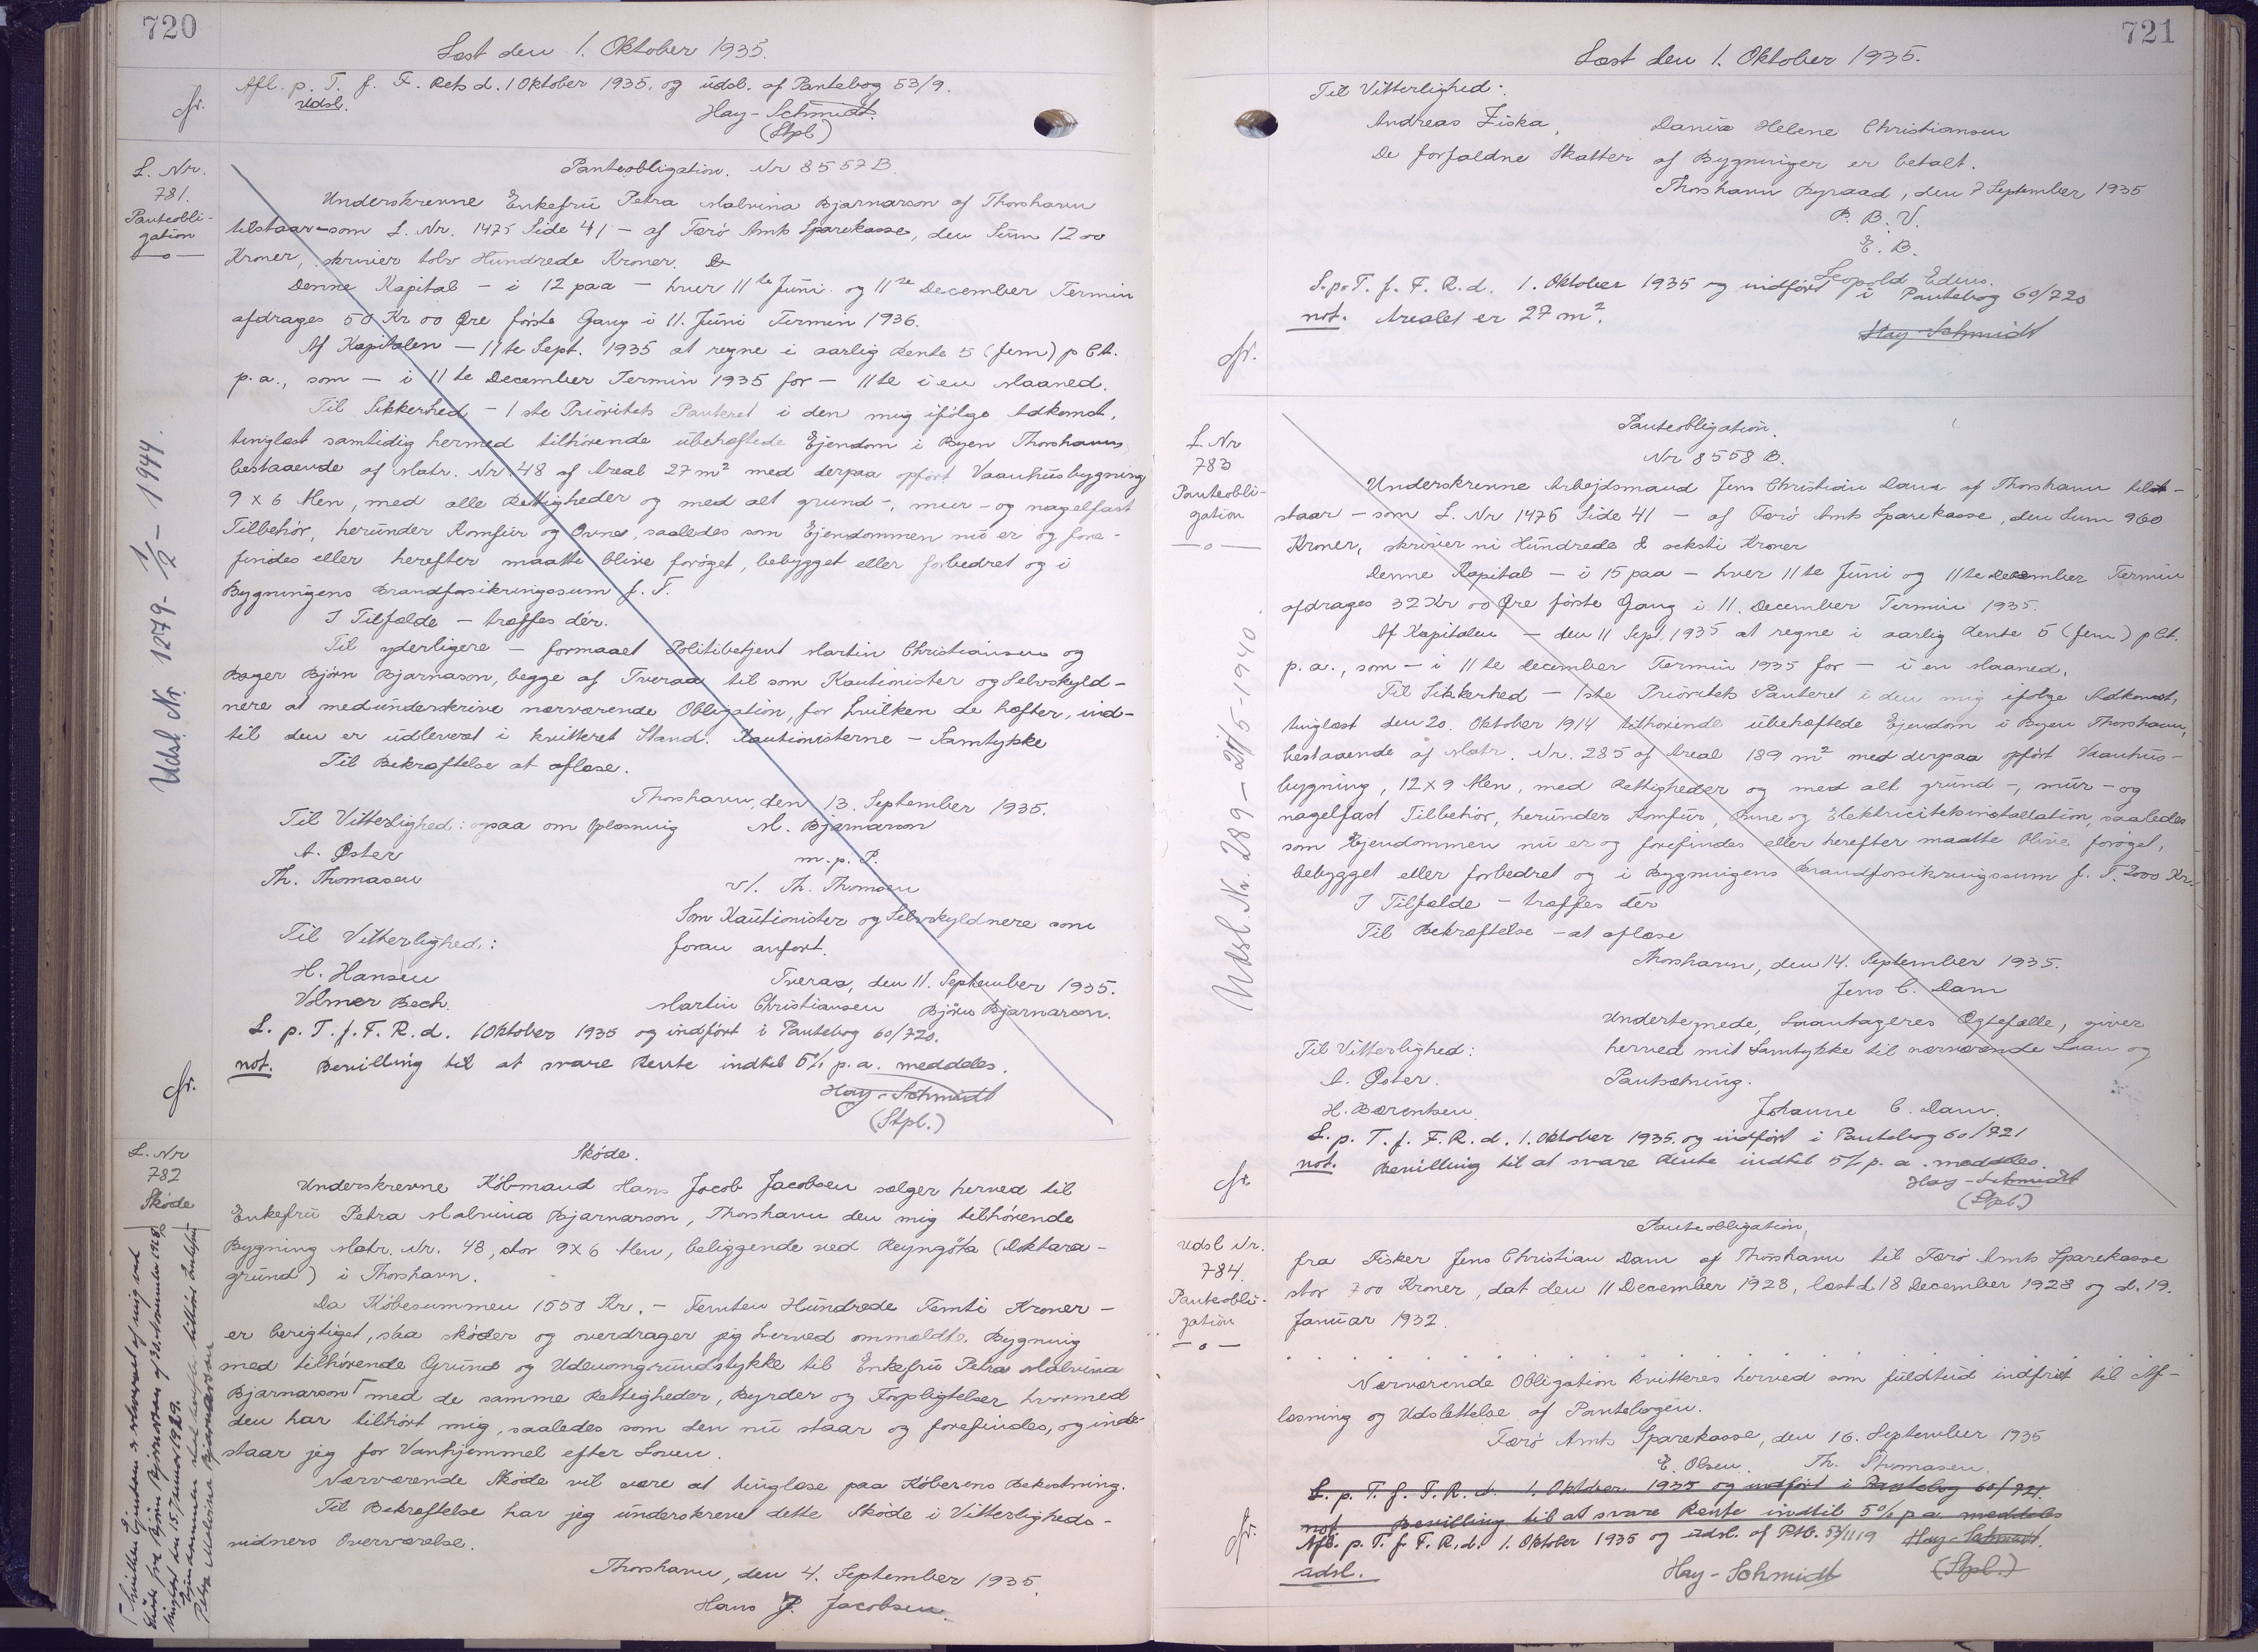 720
Læst den 1. Oktober 1935.
Afl. p. T. f. F. Rets d. 1 Oktober 1935. og udsl. af Pantebog 53/9.
Udsl.
Hay-Schmidt.
(Stpl)
L. Nr.
781.
Panteobli-
gation
Panteobligation. Nr 8557 B.
Underskrevne Enkefrü Petra Malvina Bjarnarson af Thorshavn
tilstaar - som L. Nr. 1475 Side 41 - af Færö Amts Sparekasse, den Sum 1200
Kroner, skriver tolv Hundrede Kroner.
Denne Kapital - i 12 paa - hver 11te Juni og 11te December Termin
afdrages 50 Kr 00 Øre förste Gang i 11. Juni Termin 1936.
Af Kapitalen - 11te Sept. 1935 at regne i aarlig Rente 5 (fem) p Ct.
p. a., som - i 11te December Termin 1935 for - 11te i en Maaned.
Til Sikkerhed - 1ste Prioritets Panteret i den mig ifölge Adkomst,
tinglæst samtidig hermed tilhörende übehæftede Ejendom i Byen Thorshavn,
bestaaende af Matr. Nr. 48 af Areal 27 m² med derpaa opfört Vaanhüsbygning
9 x 6 Alen, med alle Rettigheder og med alt grund-, mur- og nagelfast
Tilbehör, heründer Komfür og Ovne, saaledes som Ejendommen nü er og fore-
findes eller herefter maatte blive foröget, bebygget eller forbedret og i
Bygningens Brandforsikringssum f. T.
I Tilfælde - træffes dér.
Til yderligere - formaaet Politibetjent Martin Christiansen og
Bager Björn Bjarnason, begge af Tveraa til som Kautionister og Selvskyld-
nere at medünderskrive nærværende Obligation, for hvilken de hæfter, ind-
til den er üdleveret i kvitteret Stand. Kautionisterne - Samtykke
Til Bekræftelse at aflæse.
Thorshavn, den 13. September 1935.
Til Vitterlighed: ogsaa om Oplæsning
M. Bjarnarson
A. Øster
m. p. P.
Th. Thomasen
v/. Th. Thomsen
Som Kaütionister og Selvskyldnere som
Til Vitterlighed:
foran anfört.
H. Hansen
Tveraa, den 11. September 1935.
Volmer Bech.
Martin Christiansen Björn Bjarnarson.
L. p. T. f. F. R. d. 1 Oktober 1935 og indfört i Pantebog 60/720.
not. Bevilling til at svare Rente indtil 5% p. a. meddeles.
Hay-Schmidt
(Stpl.)
Udsl. Nr. 1279 - 1/2 - 1944.
L. Nr
782
Sköde
Sköde.
Underskrevne Köbmand Hans Jacob Jacobsen sælger herved til
Enkefrü Petra Malvina Bjarnarson, Thorshavn den mig tilhörende
Bygning Matr. Nr. 48, stor 9 x 6 Alen, beliggende ved Reyngöta (Doktara-
gründ) i Thorshavn.
Da Köbesummen 1550 Kr. - Femten Hündrede Femti Kroner -
er berigtiget, saa sköder og overdrager jeg herved ommeldte Bygning
med tilhörende Gründ og Udenomsgründstykke til Enkefrü Petra Malvina
Bjarnarson┌ med de samme Rettigheder, Byrder og Forpligtelser hvormed
den har tilhört mig, saaledes som den nü staar og forefindes, og inde-
staar jeg for Vanhjemmel efter Loven.
Nærværende Sköde vil være at tinglæse paa Köberens Bekostning.
Til Bekræftelse har jeg ünderskrevet dette Sköde i Vitterligheds-
vidners Overværelse.
Thorshavn, den 4. September 1935.
Hans J. Jacobsen.
┌ hvilken Ejendom er erhvervet af mig ved
Sköde fra Björn Björnarson af 30. November 1928,
tinglæst den 15. Januar 1929.
Ejendommen skal herefter tilhöre Enkefru
Petra Malvina Bjarnarson
721
Læst den 1. Oktober 1935.
Til Vitterlighed:
Andreas Ziska, Dania Helene Christiansen
De forfaldne Skatter af Bygninger er betalt.
Thorshavn Byraad, den 7 September 1935
P. B. V.
E. B.
Leopold Edens.
L. p. T. f. F. R. d. 1. Oktober 1935 og indfört i Pantebog 60/720
not. Arealet er 27 m².
Hay-Schmidt
L. Nr
783
Panteobli-
gation
Panteobligation.
Nr 8558 B.
Underskrevne Arbejdsmand Jens Christian Dam af Thorshavn til-
staar - som L. Nr 1475 Side 41 - af Færö Amts Sparekasse, den Sum 960
Kroner, skriver ni Hündrede & seksti Kroner
Denne Kapital - i 15 paa - hver 11te Jüni og 11te December Termin
afdrages 32 Kr 00 Øre förste Gang i 11. December Termin 1935.
Af Kapitalen - den 11 Sept. 1935 at regne i aarlig Rente 5 (fem) p Ct.
p. a., som - i 11te December Termin 1935 for - i en Maaned.
Til Sikkerhed - 1ste Prioritets Panteret i den mig ifölge Adkomst,
tinglæst den 20. Oktober 1914 tilhörende übehæftede Ejendom i Byen Thorshavn,
bestaaende af Matr. Nr. 285 af Areal 189 m² med derpaa opfört Vaanhüs-
bygning, 12 x 9 Alen, med Rettigheder og med alt gründ-, mür- og
nagelfast Tilbehör, heründer Komfür, Ovne og Elektricitetsinstallation, saaledes
som Ejendommen nü er og forefindes eller herefter maatte blive foröget,
bebygget eller forbedret og i Bygningens Brandforsikringssum f. T. 2000 Kr.
I Tilfælde - træffes dér
Til Bekræftelse - at aflæse
Thorshavn, den 14. September 1935.
Jens C. Dam
Undertegnede, Laantageres Ægtefælle, giver
Til Vitterlighed:
herved mit Samtykke til nærværende Laan og
A. Øster.
Pantsætning.
H. Bærentsen
Johanne C. Dam.
L. p. T. f. F. R. d. 1. Oktober 1935. og indfört i Pantebog 60/721
not. Bevilling til at svare Rente indtil 5% p. a. meddeles.
Hay-Schmidt
(Stpl.)
Udsl. Nr. 289 - 5-1940.
Udsl Nr.
784.
Panteobli-
gation
Panteobligation,
fra Fisker Jens Christian Dam af Thorshavn til Færö Amts Sparekasse
stor 700 Kroner, dat den 11 December 1928, læst d. 18 December 1928 og d. 19.
Januar 1932.
Nærværende Obligation kvitteres herved som fuldtud indfriet til Af-
læsning og Udslettelse af Pantebogen.
Færö Amts Sparekasse, den 16. September 1935
E. Olsen. Th. Thomasen.
L. p. T. f. F. R. d. 1. Oktober 1935 og indfört i Pantebog 60/721.
not Bevilling til at svare Rente indtil 5% p a. meddeles
Afl. p. T. f. F. R. d. 1. Oktober 1935 og udsl. af Ptb. 53/1119 Hay-Schmidt.
udsl.
Hay-Schmidt (Stpl.)